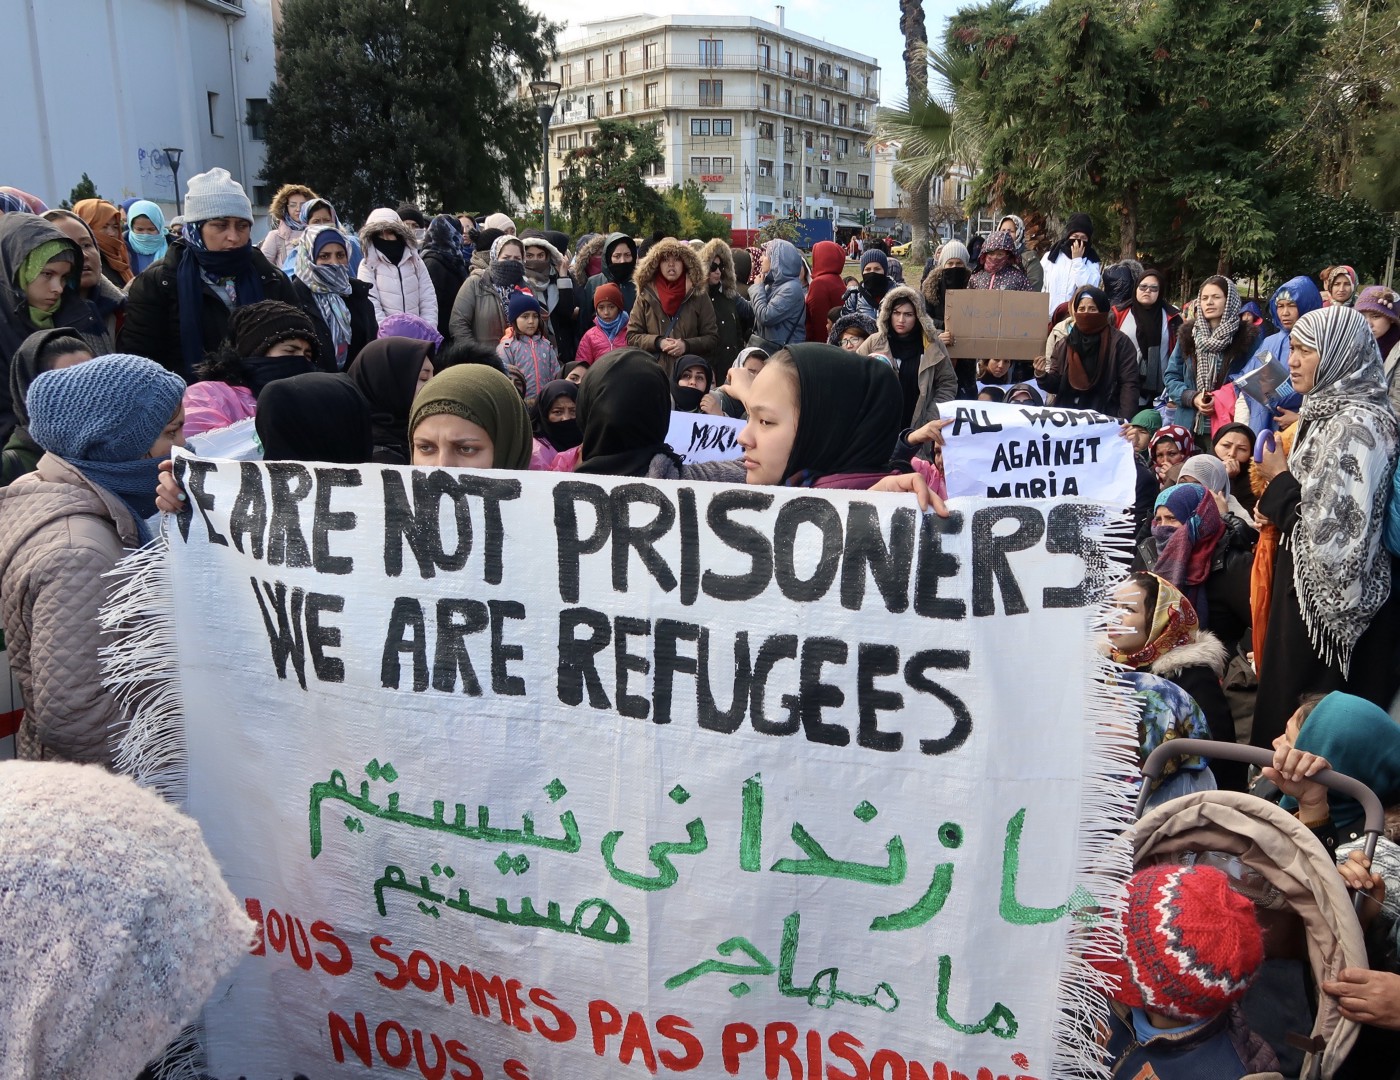 ERGO
MORIA
ALL WOMEN
AGAINST
MORIA
WE ARE NOT PRISONERS
WE ARE REFUGEES
ما زندانی نیستیم
ما مهاجر هستیم
NOUS SOMMES PAS PRISONNI
NOUS S